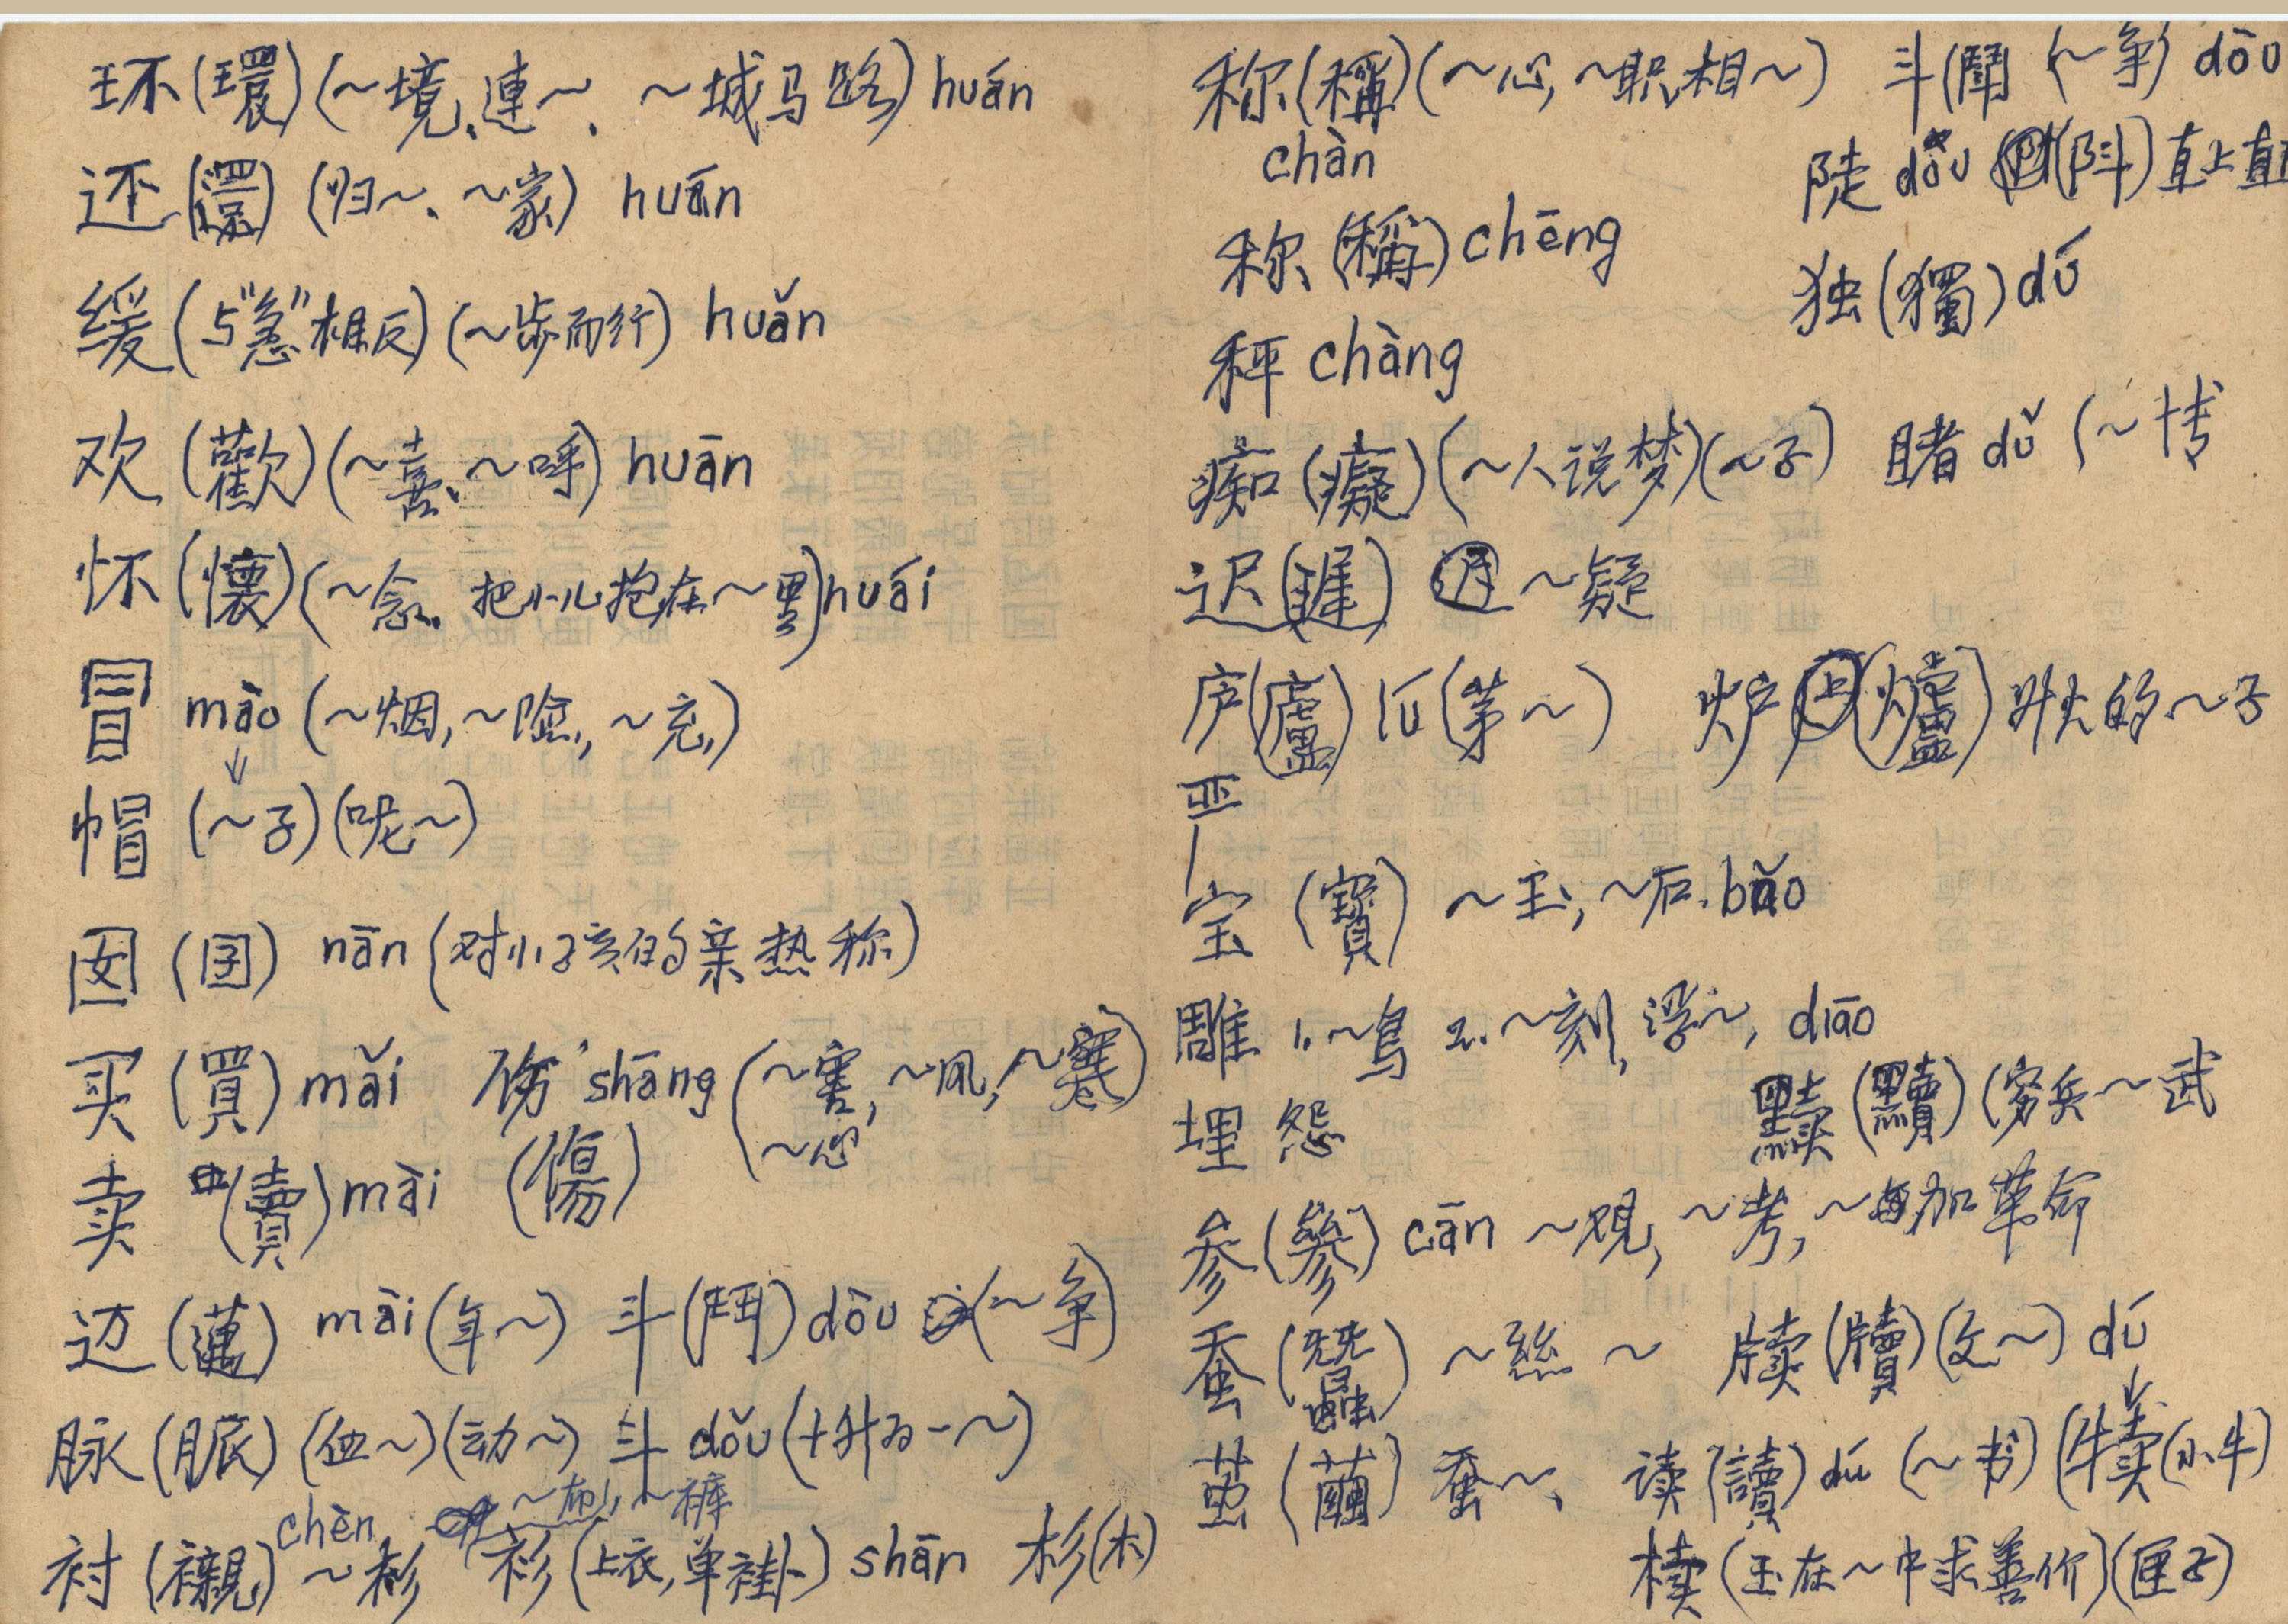 环(環)(~境、連~、~城马路) huán
还(還)(归~、~家) huán
缓(与"急"相反)(~步而行) huǎn
欢(歡)(~喜、~呼) huān
怀(懷)(~念、把小儿抱在~里) huái
冒 mào (~烟,~险,~充,)
帽 (~子)(呢~)
囡(囝) nān (对小孩的亲热称)
买(買) mǎi 伤 shāng (~害,~风,~寒
~心)
卖(賣) mài (傷)
迈(邁) mài (年~) 斗(鬥) dòu (~争)
脉(脈)(血~)(动~) 斗 dǒu (十升为一~)
chèn ~裤
衬(襯) ~衫 衫(上衣,单褂) shān 杉(木)
称(稱)(~心,~职,相~) 斗(鬪 (~争) dòu
chàn 陡 dǒu (阧) 直上直
称(稱) chēng 独(獨) dú
秤 chàng
痴(癡)(~人说梦)(~子) 睹 dǔ (~博
迟(遲) ~疑
庐(廬) lú (茅~) 炉(爐) 的~子
亚
宝(寶) ~玉,~石. bǎo
雕 1.~鸟 2.~刻,浮~, diāo
埋怨 黩(黷)(穷兵~武
参(參) cān ~观,~考,~加革命
蚕(蠶) ~絲~ 牍(牘)(文~) dú
茧(繭) 蚕~、读(讀) dú (~书)(犊(小牛)
椟(玉在~中求善价)(匣子)